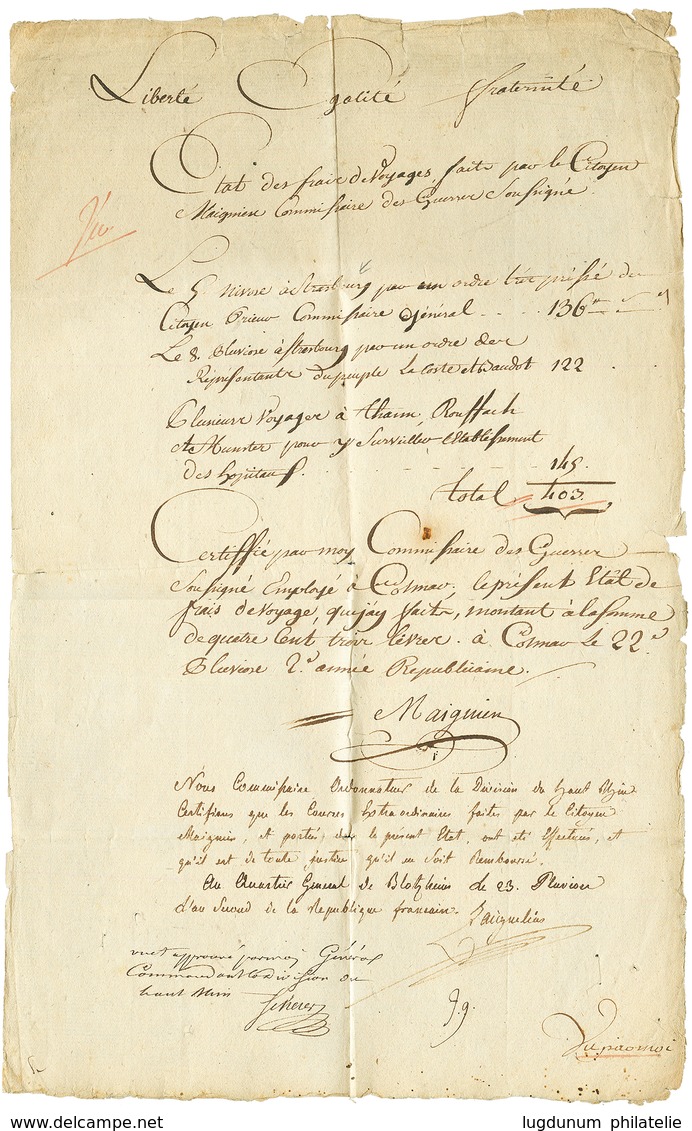 Liberté Egalité fraternité
Etat des frais de Voyages, faits par le Citoyen
Maignien Commissaire des Guerres Soussigné.
Vu
Le 5. nivose à Strasbourg par un ordre très pressé du
Citoyen Prieur Commissaire général .... 136
Le 8. Pluviose à Strasbourg par un ordre des
Représentants du peuple La Coste et Baudot 122
Plusieurs Voyages à Thann, Rouffach
et Munster pour y Surveiller Etablissement
des hopitaux. 145.
total 403.
Certiffié par moy Commissaire des Guerres
Soussigné Employé à Colmar, le présent Etat de
frais de voyage, que j'ay faits, montant à la somme
de quatre Cent trois livres. à Colmar le 22.e
Pluviose 2.e année Republicaine.
Maignien
Nous Commissaire Ordonnateur de la Division du haut Rhin
Certifions que les Courses Extraordinaires faites par le Citoyen
Maignien, et portées dans le présent Etat, ont été Effectuées, et
qu'il est de toute justice qu'il en Soit Remboursé.
Au Quartier General de Blotzheim le 23. Pluviose
d'an Second de la Republique francaise.
vu et approuvé par moi Général
Commandant la division du
haut Rhin
Scherer
Vu par moi
lugdunum philatelie